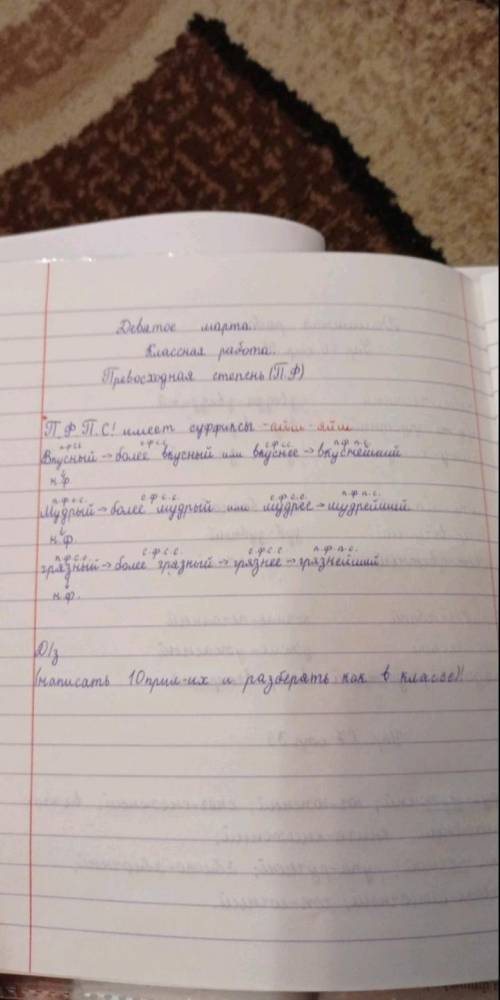 Девятое марта.
Классная работа.
Превосходная степень (П.Ф)
П.Ф.П.С! имеет суффиксы -айш -яйш
с.ф.с.с. с.ф.с.с. п.ф.п.с.
Вкусный → более вкусный или вкуснее → вкуснейший
н.ф.
п.ф.с.с. с.ф.с.с. с.ф.с.с. п.ф.п.с.
Мудрый → более мудрый или мудрее → мудрейший.
н.ф.
п.ф.с.с. с.ф.с.с. с.ф.с.с п.ф.п.с.
грязный → более грязный → грязнее → грязнейший
н.ф.
Д/з
(написать 10 прил-их и разберать как в классе)!